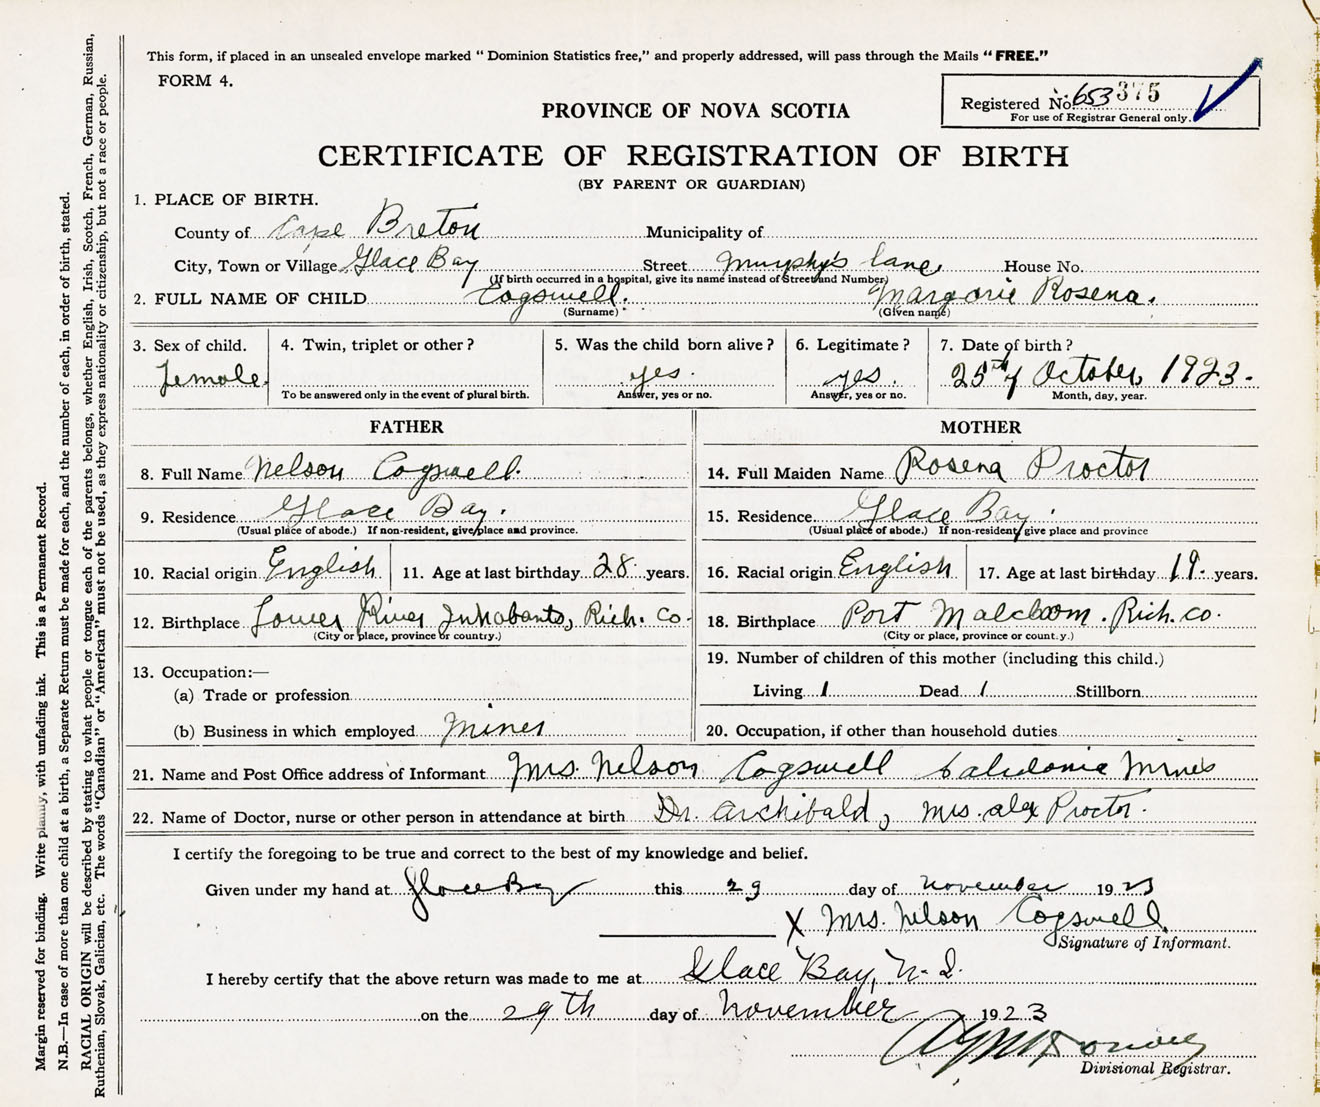 This form, if placed in an unsealed envelope marked "Dominion Statistics free," and properly addressed, will pass through the Mails "FREE."
FORM 4.
Registered No. 653375
For use of Registrar General only.
PROVINCE OF NOVA SCOTIA
CERTIFICATE OF REGISTRATION OF BIRTH
(BY PARENT OR GUARDIAN)
1. PLACE OF BIRTH.
County of Cape Breton Municipality of
City, Town or Village Glace Bay Street Murphy's lane, House No.
(If birth occurred in a hospital, give its name instead of Street and Number)
2. FULL NAME OF CHILD Cogswell. Margorie Rosena.
(Surname) (Given name)
3. Sex of child. 4. Twin, triplet or other? 5. Was the child born alive? 6. Legitimate? 7. Date of birth?
Female. yes. yes. 25th of October, 1923.
To be answered only in the event of plural birth. Answer, yes or no. Answer, yes or no. Month, day, year.
FATHER MOTHER
8. Full Name Nelson Cogswell. 14. Full Maiden Name Rosena Proctor
9. Residence Glace Bay. 15. Residence Glace Bay.
(Usual place of abode.) If non-resident, give place and province. (Usual place of abode.) If non-resident give place and province
10. Racial origin English 11. Age at last birthday 28. years. 16. Racial origin English 17. Age at last birthday 19. years.
12. Birthplace Lower River Inhabants, Rich. Co. 18. Birthplace Port Malcloom. Rich. co.
(City or place, province or country.) (City or place, province or county.)
13. Occupation:— 19. Number of children of this mother (including this child.)
(a) Trade or profession Living 1 Dead 1 Stillborn
(b) Business in which employed Miner 20. Occupation, if other than household duties
21. Name and Post Office address of Informant Mrs. Nelson Cogswell Calidonia Mines
22. Name of Doctor, nurse or other person in attendance at birth Dr. Archibald, Mrs. Alex Proctor.
I certify the foregoing to be true and correct to the best of my knowledge and belief.
Given under my hand at Glace Bay this 29 day of November 1923
X Mrs. Nelson Cogswell.
Signature of Informant.
I hereby certify that the above return was made to me at Glace Bay, N. S.
on the 29th day of November 1923
Divisional Registrar.
Margin reserved for binding. Write plainly, with unfading ink. This is a Permanent Record.
N.B.—In case of more than one child at a birth, a Separate Return must be made for each, and the number of each, in order of birth, stated.
RACIAL ORIGIN will be described by stating to what people or tongue each of the parents belongs, whether English, Irish, Scotch, French, German, Russian,
Ruthenian, Slovak, Galician, etc. The words "Canadian" or "American" must not be used, as they express nationality or citizenship, but not a race or people.